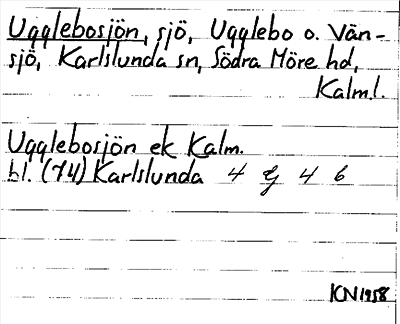 Ugglebosjön, sjö, Ugglebo o. Vän-
sjö, Karlslunda sn, Södra Möre hd,
Kalm.l.
Ugglebosjön ek Kalm.
bl. (74) Karlslunda 4 G 4 b
KN1958